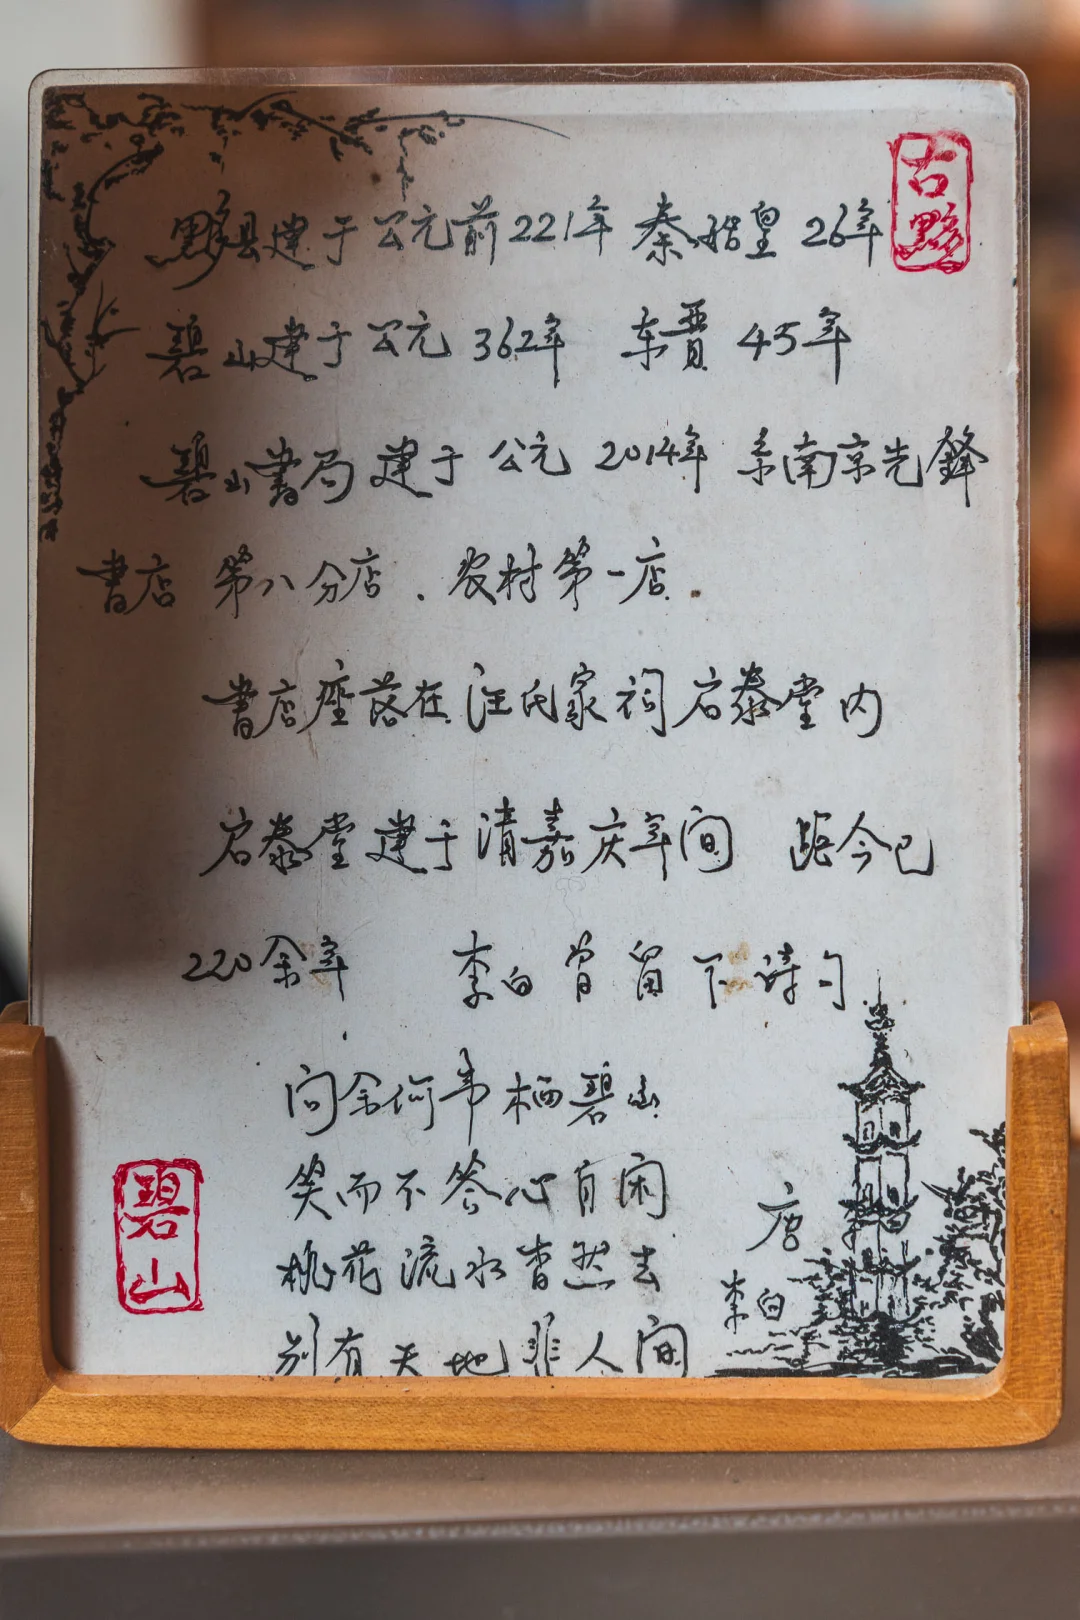 古黟
黟县建于公元前221年 秦始皇 26年
碧山建于公元 362年 东晋 45年
碧山書局 建于 公元 2014年 系南京先鋒
書店 第八分店、农村第一店.
書店座落在汪氏家祠启泰堂内
启泰堂建于清嘉庆年间 距今已
220余年 李白曾留下诗句
问余何事栖碧山
笑而不答心自闲
桃花流水杳然去
别有天地非人间
唐
李白
碧山